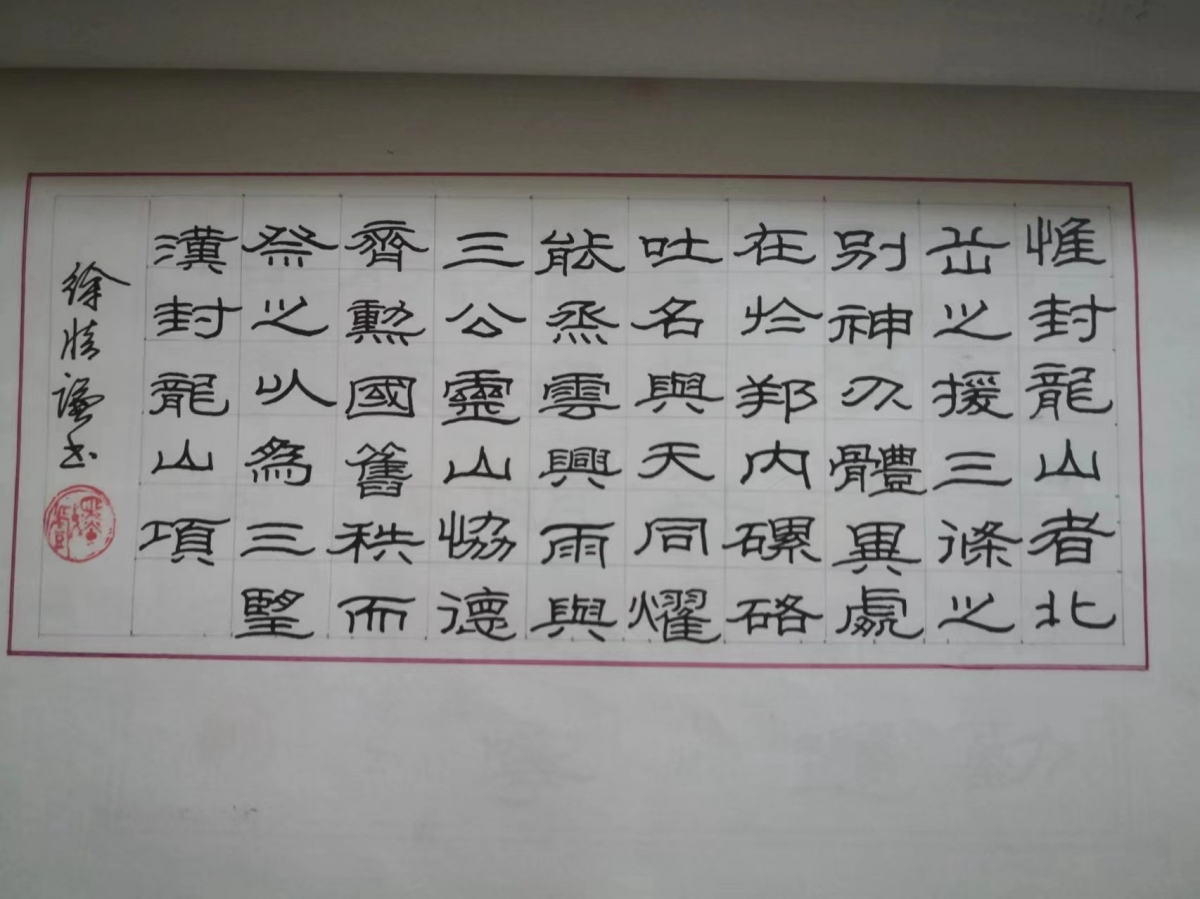 惟封龍山者北
岳之援三條之
别神㕥體異處
在於邦内磥硌
吐名與天同燿
能烝雲興雨與
三公靈山協德
齊勲國舊秩而
祭之以為三望
漢封龍山項
徐
書